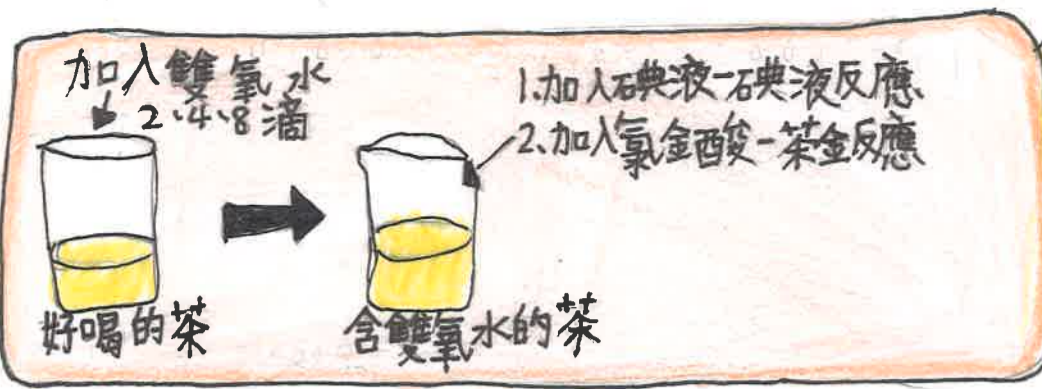 加入雙氧水
2、4、8滴
1.加入碘液-碘液反應
2.加入氯金酸-茶金反應
好喝的茶
含雙氧水的茶